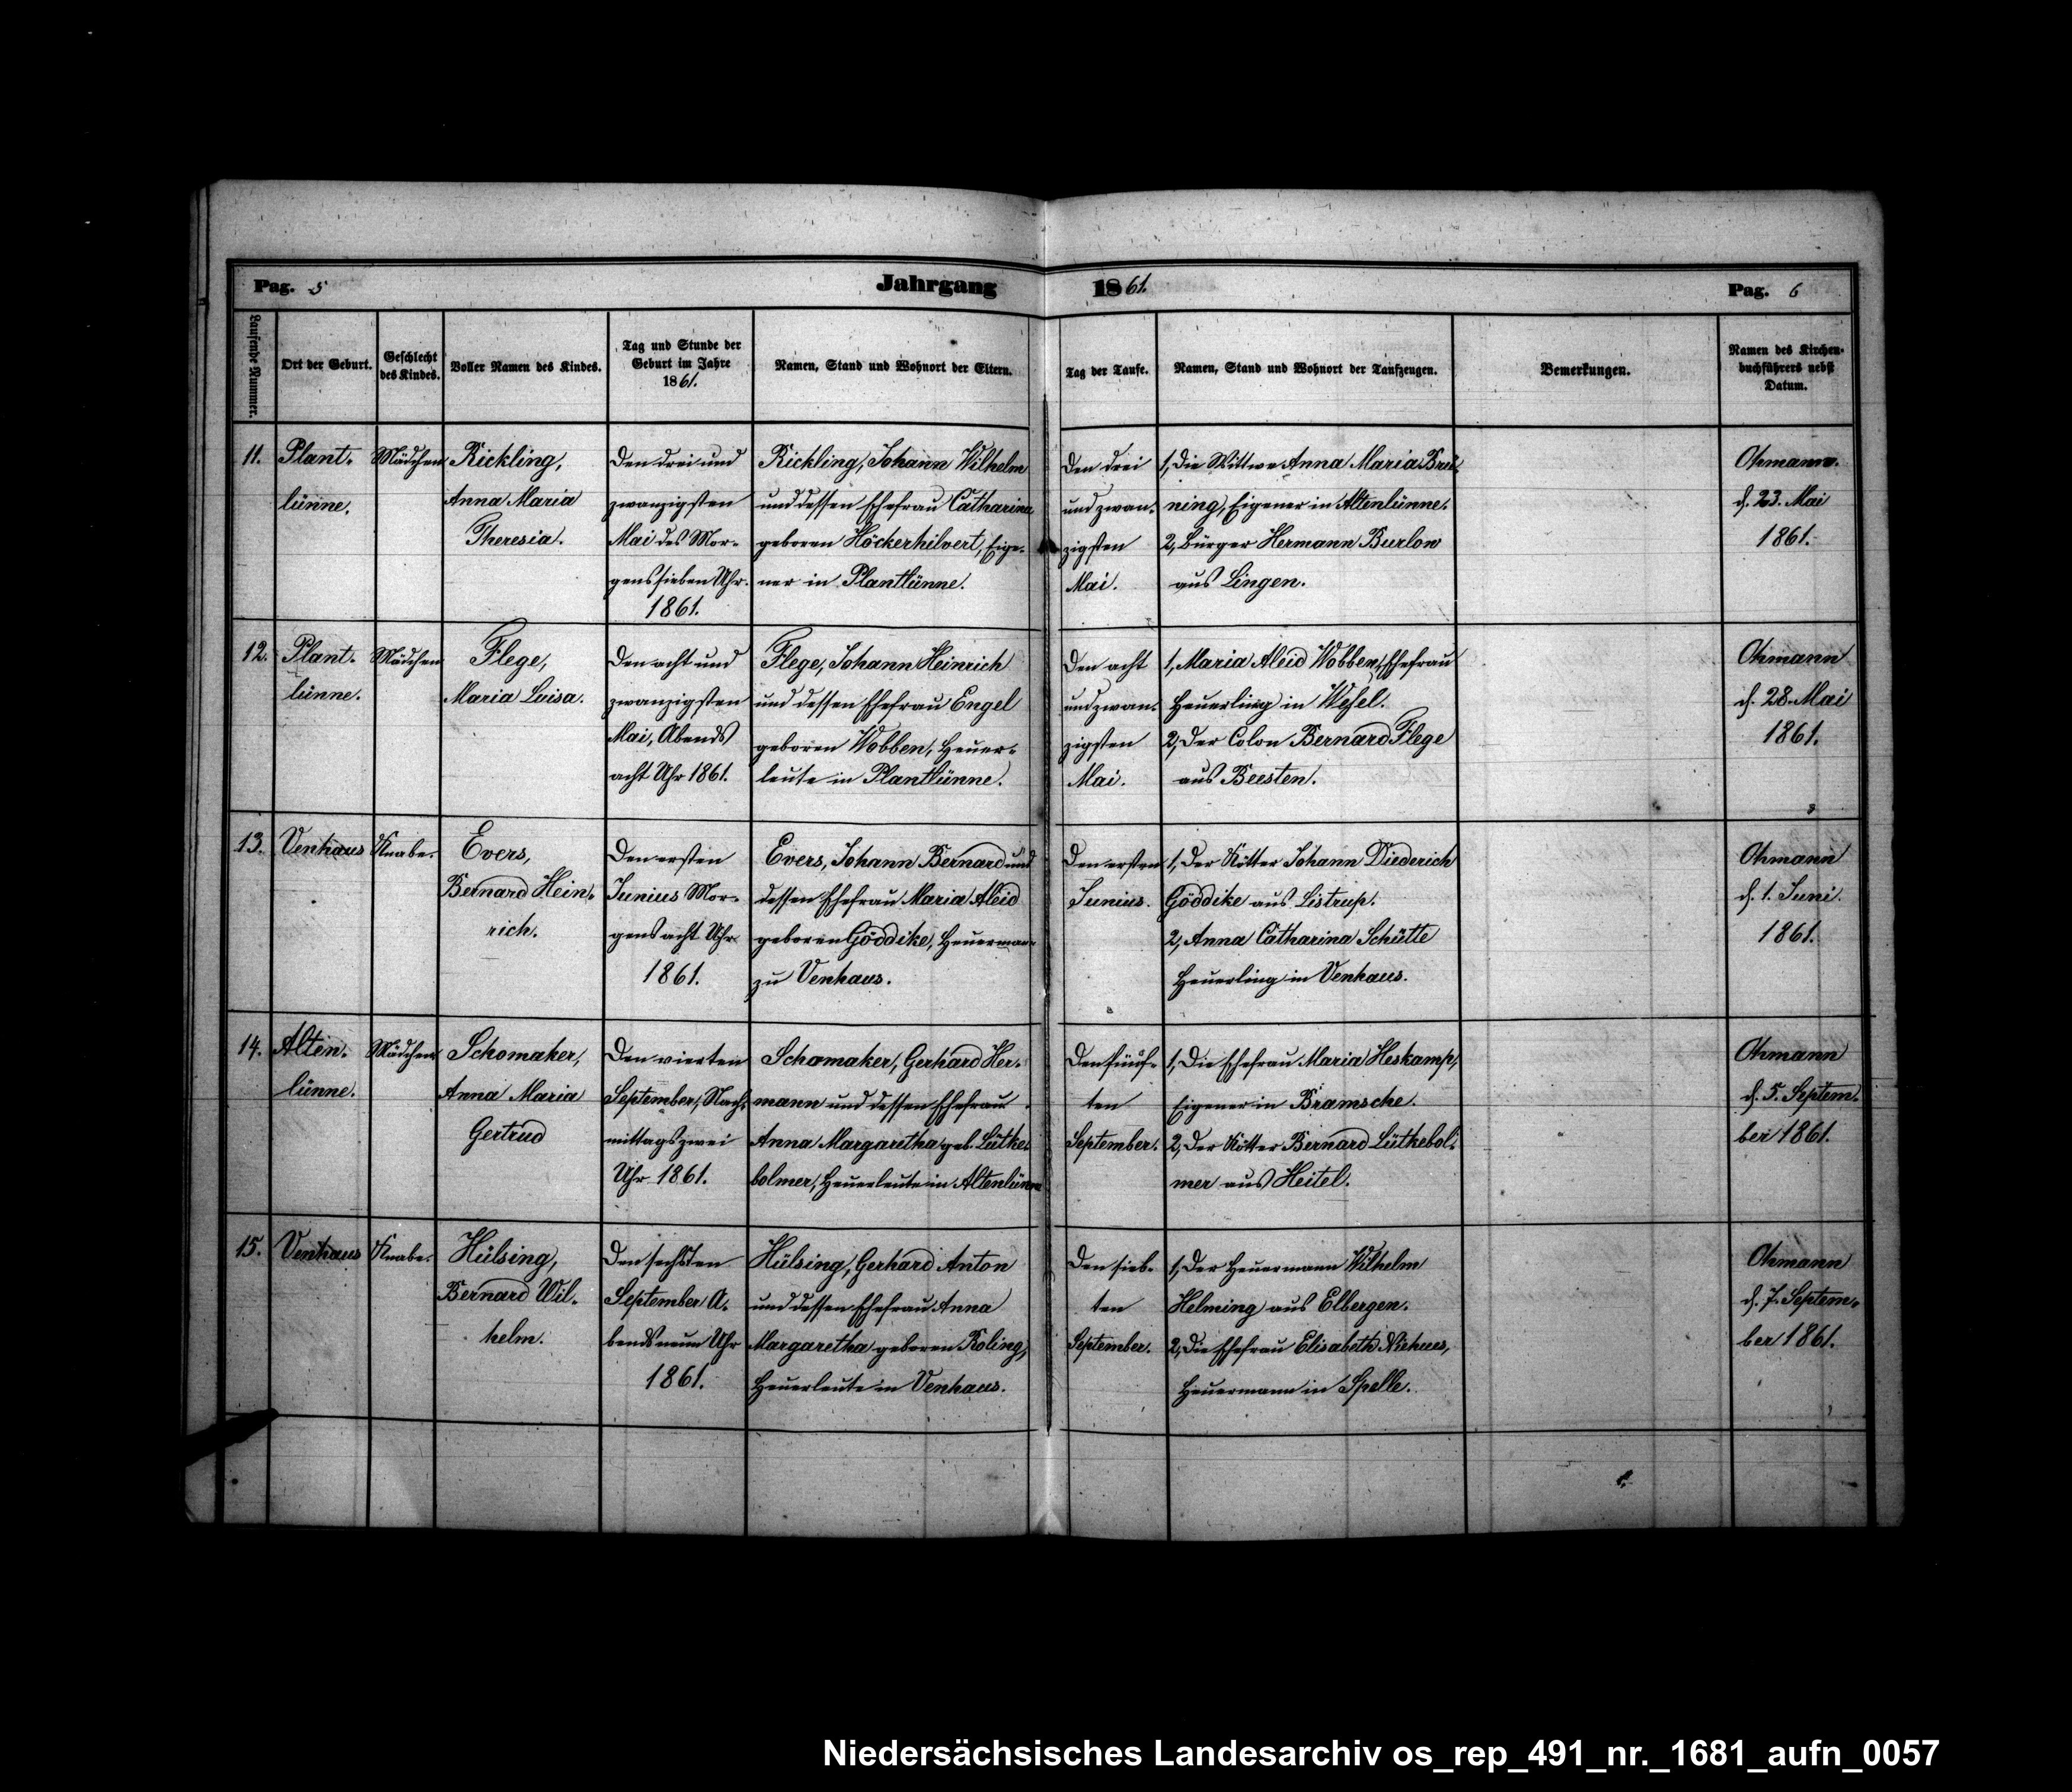 Pag. 5 Jahrgang 1861. Pag. 6
Laufende Nummer.
Ort der Geburt.
Geschlecht
des Kindes.
Voller Namen des Kindes.
Tag und Stunde der
Geburt im Jahre
1861.
Namen, Stand und Wohnort der Eltern.
Tag der Taufe.
Namen, Stand und Wohnort der Taufzeugen.
Bemerkungen.
Namen des Kirchen-
buchführers nebst
Datum.
11.
Plant-
lünne.
Mädchen
Rickling,
Anna Maria
Theresia.
Den drei und
zwanzigsten
Mai des Mor-
gens sieben Uhr.
1861.
Rickling, Johann Wilhelm
und dessen Ehefrau Catharina
geboren Höckerhilvert, Eige-
ner in Plantlünne.
Den drei
und zwan-
zigsten
Mai.
1, Die Wittwe Anna Maria Brü-
ning, Eigener in Altenlünne.
2, Bürger Hermann Burlow
aus Lingen.
Ohmann.
d. 23. Mai
1861.
12.
Plant-
lünne.
Mädchen
Flege,
Maria Loisa.
Den acht und
zwanzigsten
Mai, Abends
acht Uhr 1861.
Flege, Johann Heinrich
und dessen Ehefrau Engel
geboren Wobben, Heuer-
leute in Plantlünne.
Den acht
und zwan-
zigsten
Mai.
1, Maria Aleid Wobben, Ehefrau
Heuerling in Wesel.
2, Der Colon Bernard Flege
aus Beesten.
Ohmann
d. 28. Mai
1861.
13.
Venhaus
Knabe.
Evers,
Bernard Hein-
rich.
Den ersten
Junius Mor-
gens acht Uhr
1861.
Evers, Johann Bernard und
dessen Ehefrau Maria Aleid
geboren Göddike, Heuermann
zu Venhaus.
Den ersten
Junius.
1, Der Kötter Johann Diederich
Göddike aus Listrup.
2, Anna Catharina Schütte
Heuerling in Venhaus.
Ohmann
d. 1. Juni.
1861.
14.
Alten-
lünne.
Mädchen
Schomaker,
Anna Maria
Gertrud
Den vierten
September, Nach-
mittags zwei
Uhr 1861.
Schomaker, Gerhard Her-
mann und dessen Ehefrau
Anna Margaretha geb. Lütke-
bolmer, Heuerleute in Altenlünne
Den fünf-
ten
September.
1, Die Ehefrau Maria Heskamp,
Eigener in Bramsche.
2, Der Kötter Bernard Lütkebol-
mer aus Heitel.
Ohmann
d. 5. Septem-
ber 1861.
15.
Venhaus
Knabe.
Hülsing,
Bernard Wil-
helm.
Den sechsten
September A-
bends neun Uhr
1861.
Hülsing, Gerhard Anton
und dessen Ehefrau Anna
Margaretha geboren Roling,
Heuerleute in Venhaus.
Den sieb-
ten
September.
1, Der Heuermann Wilhelm
Helming aus Elbergen.
2, Die Ehefrau Elisabeth Niehues,
Heuermann in Spelle.
Ohmann
d. 7. Septem-
ber 1861.
Niedersächsisches Landesarchiv os_rep_491_nr._1681_aufn_0057